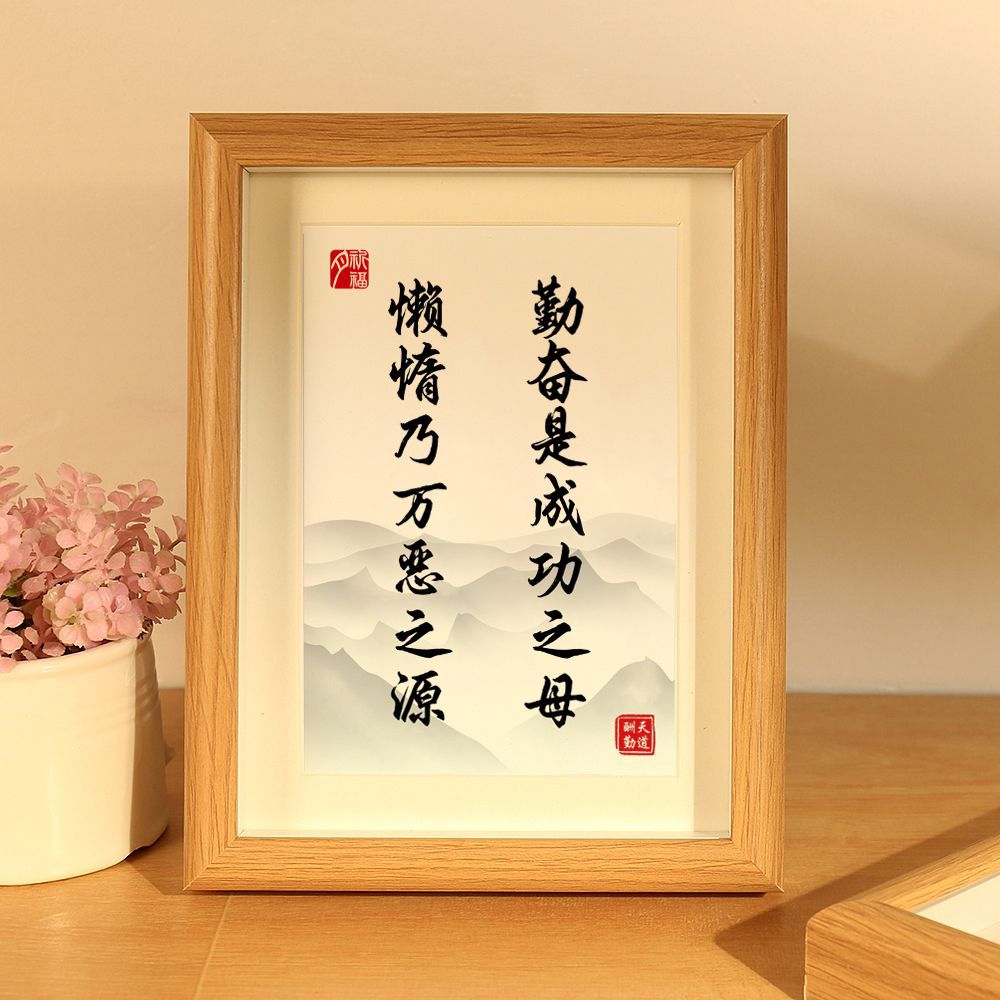 勤奋是成功之母
懒惰乃万恶之源
祈福
天道
酬勤